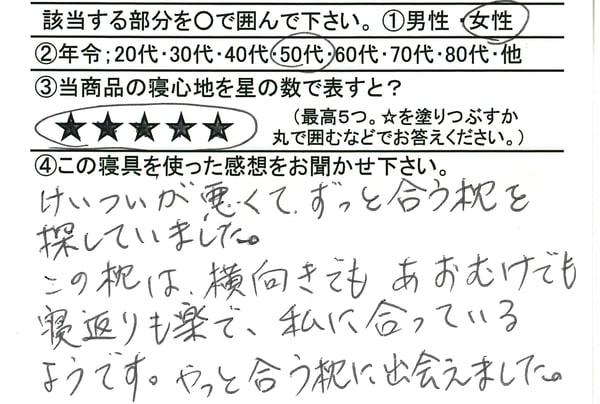 該当する部分を○で囲んで下さい。①男性・女性
②年令;20代・30代・40代・50代・60代・70代・80代・他
③当商品の寝心地を星の数で表すと?
★★★★★ (最高5つ。☆を塗りつぶすか
丸で囲むなどでお答えください。)
④この寝具を使った感想をお聞かせ下さい。
けいついが悪くて、ずっと合う枕を
探していました。
この枕は、横向きでも あおむけでも
寝返りも楽で、私に合っている
ようです。やっと合う枕に出会えました。